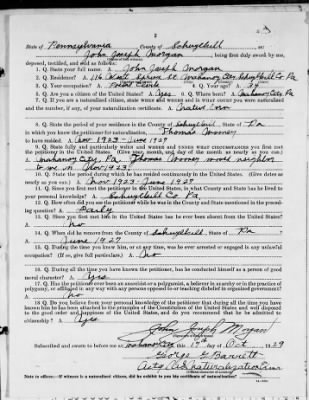 2
State of Pennsylvania County of Schuylkill ss:
John Joseph Morgan being first duly sworn by me,
deposed, testified, and said as follows:
1. Q. State your full name. A. John Joseph Morgan
2. Q. Residence? A. 116 West Spruce St. Mahanoy City, Schuylkill Co. Pa
3. Q. Your occupation? A. Clerk 4. Q. Your age? A. 34
5. Q. Are you a citizen of the United States? A. Yes 6. Q. Where born? A. Mahanoy City, Pa
7. Q. If you are a naturalized citizen, state when and where and in what court you were naturalized
and the number, if any, of your naturalization certificate. A. Native Born
8. Q. State the period of your residence in the county of Schuylkill, State of Pa
in which you knew the petitioner for naturalization, Thomas Mooney
to have resided A. Nov 1923 - June 1927
9. Q. State fully and particularly when and where and under what circumstances you first met
the petitioner in the United States. (Give year, month, and day of the month as nearly as you can.)
Mahanoy City, Pa. Thomas Mooney moved neighbor
to me on Nov 1923
10. Q. State the period during which he has resided continuously in the United States. (Give dates as
nearly as you can.) A. Nov 1923 - June 1927
11. Q. Since you first met the petitioner in the United States, in what County and State has he lived to
your personal knowledge? A. Schuylkill Co. Pa
12. Q. How often did you see the petitioner while he was in the County and State mentioned in the preceding question? A. Daily
13. Q. Since you first met him in the United States has he ever been absent from the United States?
A. No
14. Q. When did he remove from the county of Schuylkill, State of Pa
A. June 1927
15. Q. During the time you knew him, or at any time, was he ever arrested or engaged in any unlawful
occupation? (If so, give full particulars.) A. No
16. Q. During all the time you have known the petitioner, has he conducted himself as a person of good
moral character? A. Yes
17. Q. Has the petitioner ever been an anarchist or a polygamist, a believer in anarchy or in the practice of
polygamy, or affiliated in any way with any persons opposed to or teaching disbelief in organized government?
A. No
18. Q. Do you believe from your personal knowledge of the petitioner that during all the time you have
known him he has been attached to the principles of the Constitution of the United States and well disposed
to the good order and happiness of the United States, and do you recommend that he be admitted to
citizenship? A. Yes
John Joseph Morgan
Subscribed and sworn to before me at Mahanoy City this 17th day of Oct 1929
George G Barrett